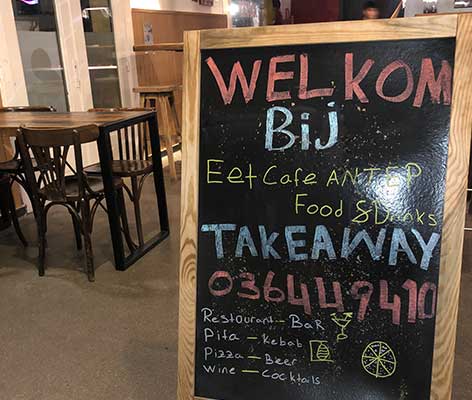 WELKOM
Bij
Eet Cafe ANTEP
Food & Drinks
TAKEAWAY
0364449410
Restourant - BaR
Pita - Kebab
Pizza - Beer
wine - Cocktails